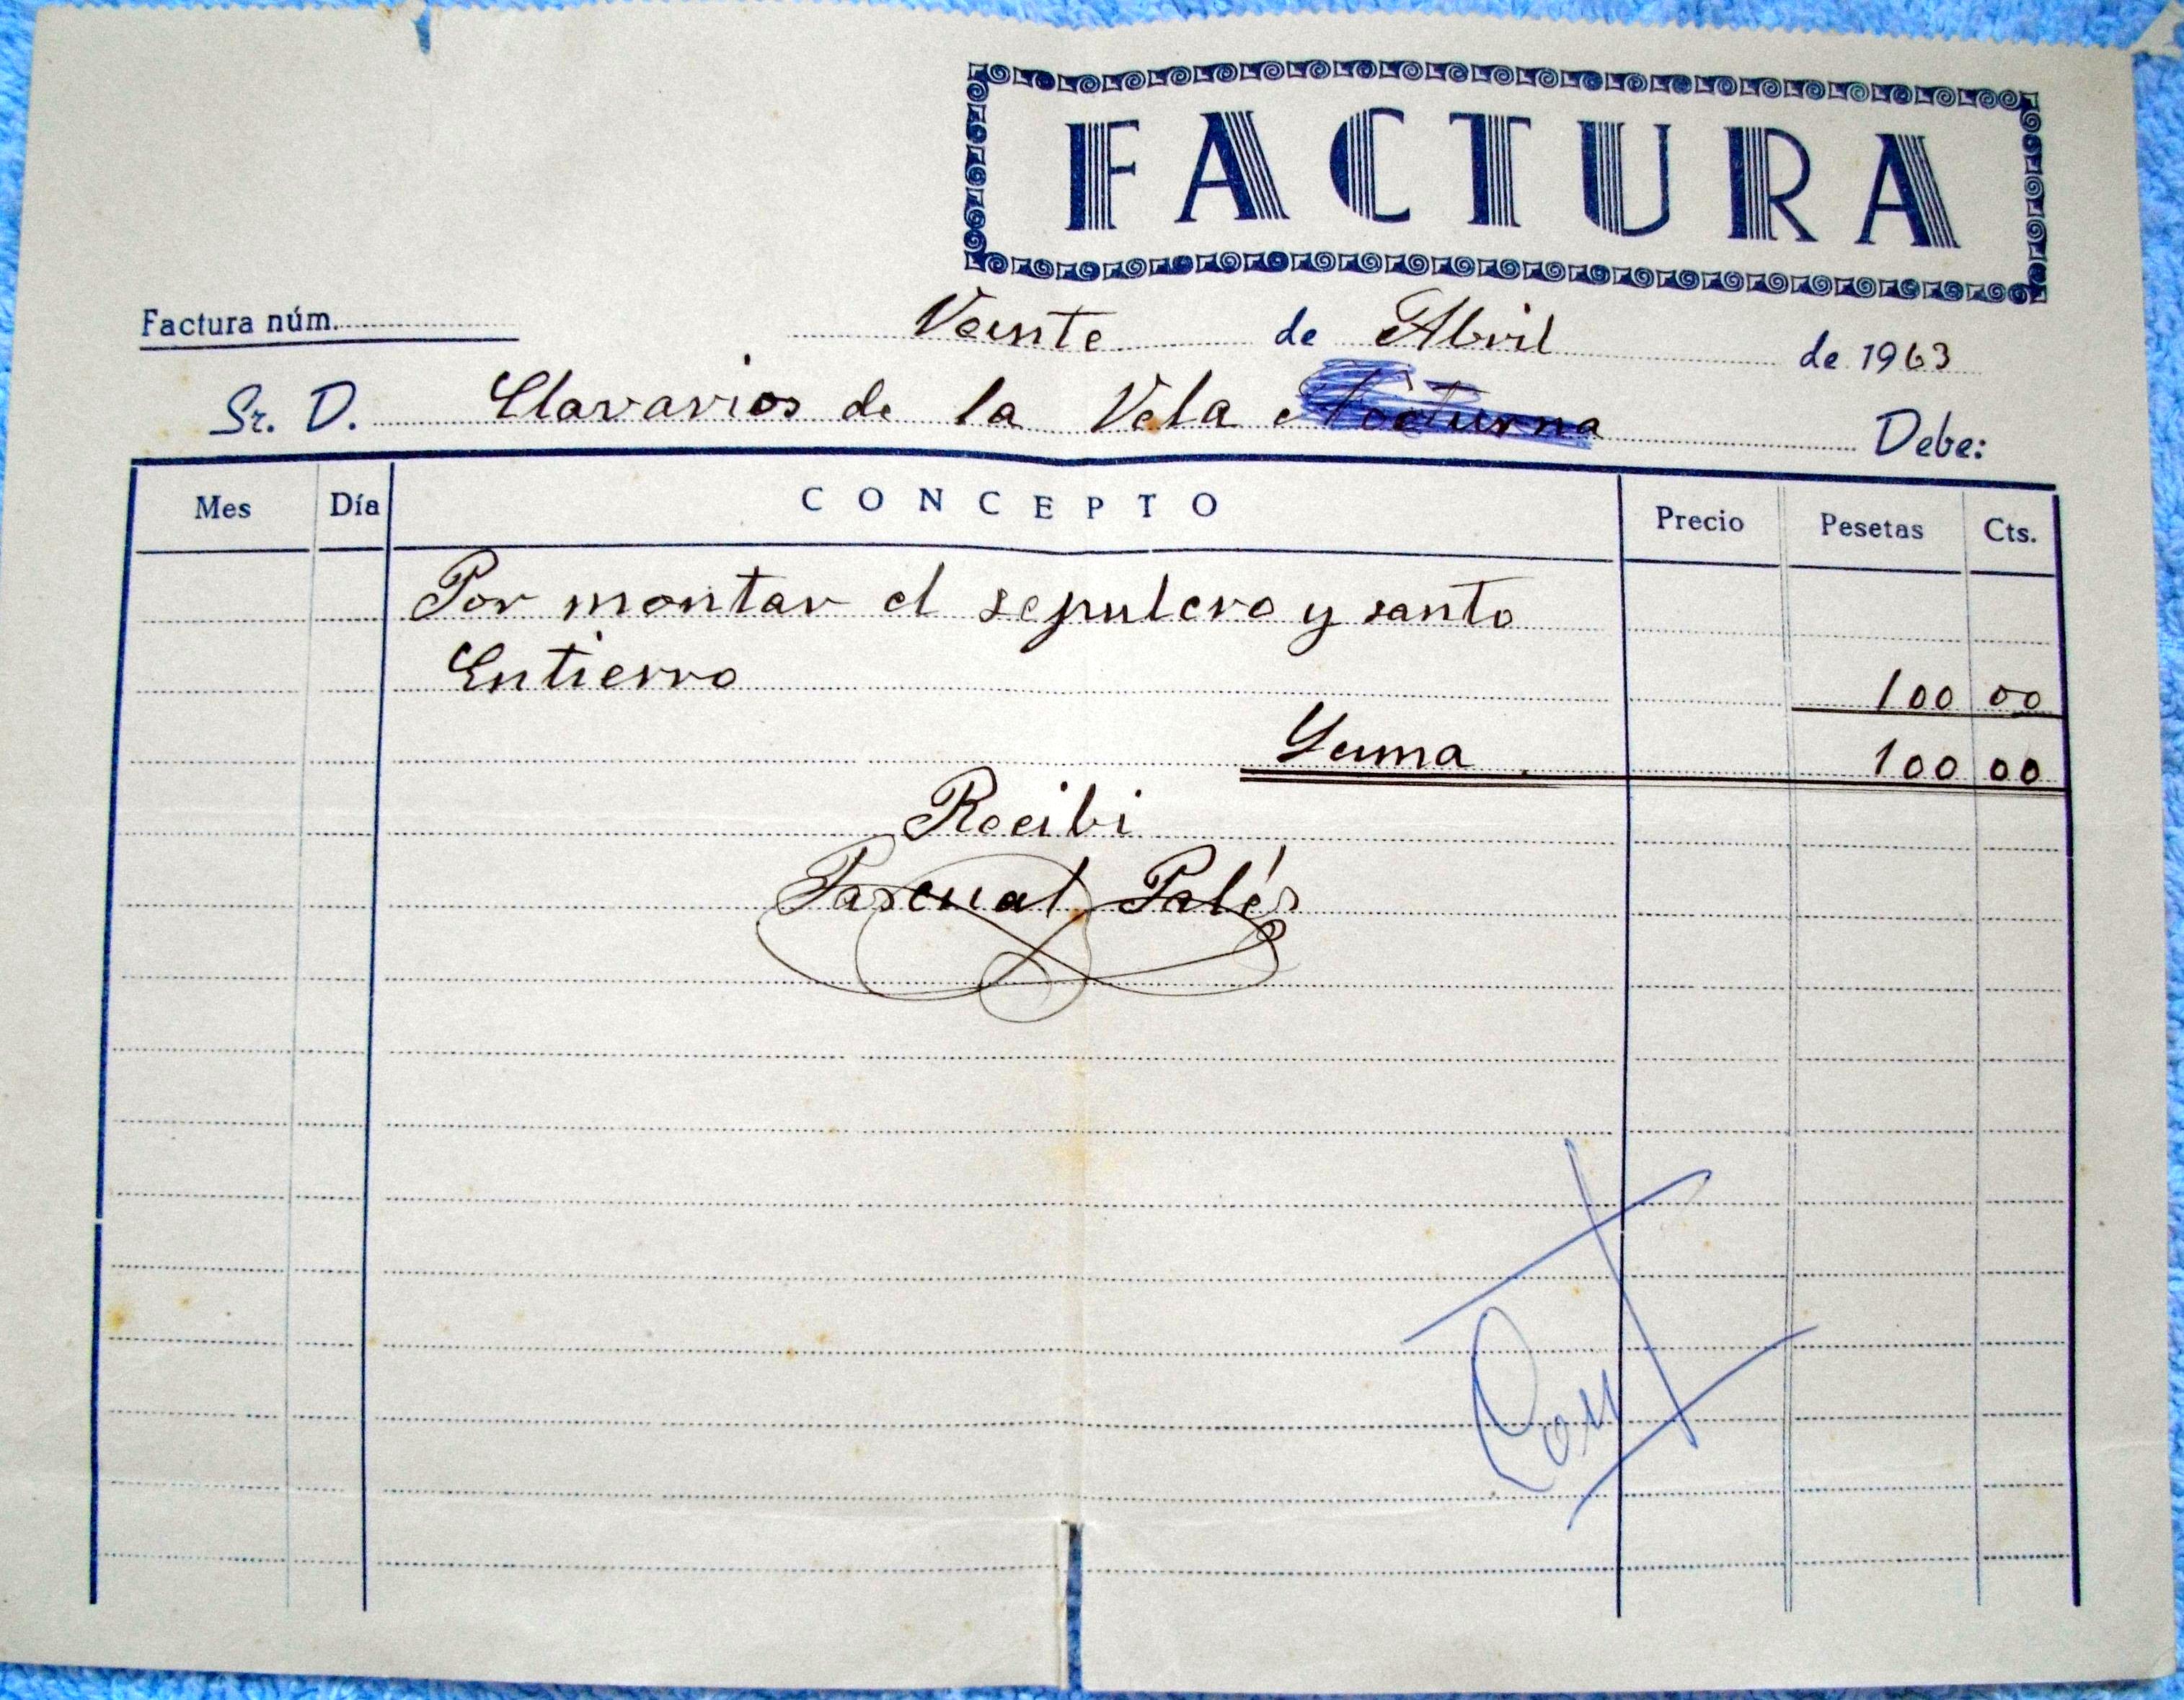 FACTURA
Factura núm.
Veinte de Abril de 1963
Sr. D. Clavarios de la Vela Nocturna Debe:
Mes Día CONCEPTO Precio Pesetas Cts.
Por montar el sepulcro y santo
Entierro 100 00
Suma 100 00
Recibi
Pascual Palés